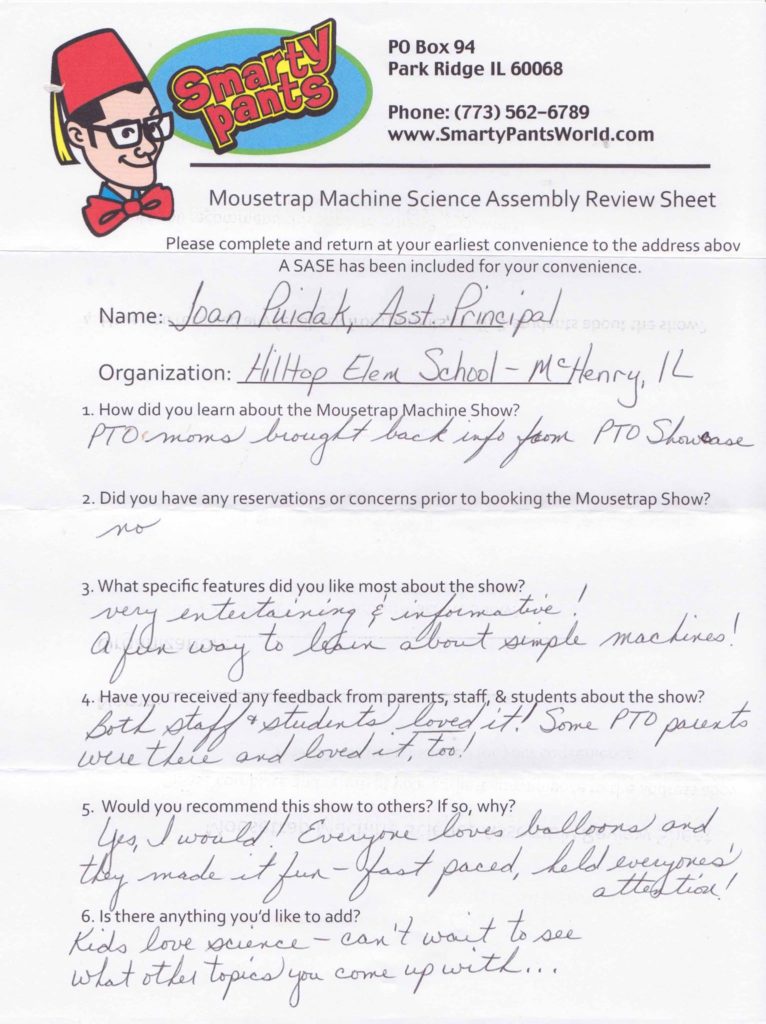 Smarty
pants
PO Box 94
Park Ridge IL 60068
Phone: (773) 562-6789
www.SmartyPantsWorld.com
Mousetrap Machine Science Assembly Review Sheet
Please complete and return at your earliest convenience to the address abov
A SASE has been included for your convenience.
Name: Joan Puidak, Asst. Principal
Organization: Hilltop Elem School - McHenry, IL
1. How did you learn about the Mousetrap Machine Show?
PTO moms brought back info from PTO Showcase
2. Did you have any reservations or concerns prior to booking the Mousetrap Show?
no
3. What specific features did you like most about the show?
very entertaining & informative!
A fun way to learn about simple machines!
4. Have you received any feedback from parents, staff, & students about the show?
Both staff & students loved it! Some PTO parents
were there and loved it, too!
5. Would you recommend this show to others? If so, why?
Yes, I would. Everyone loves balloons and
they made it fun - fast paced, held everyones'
attention!
6. Is there anything you'd like to add?
Kids love science - can't wait to see
what other topics you come up with...